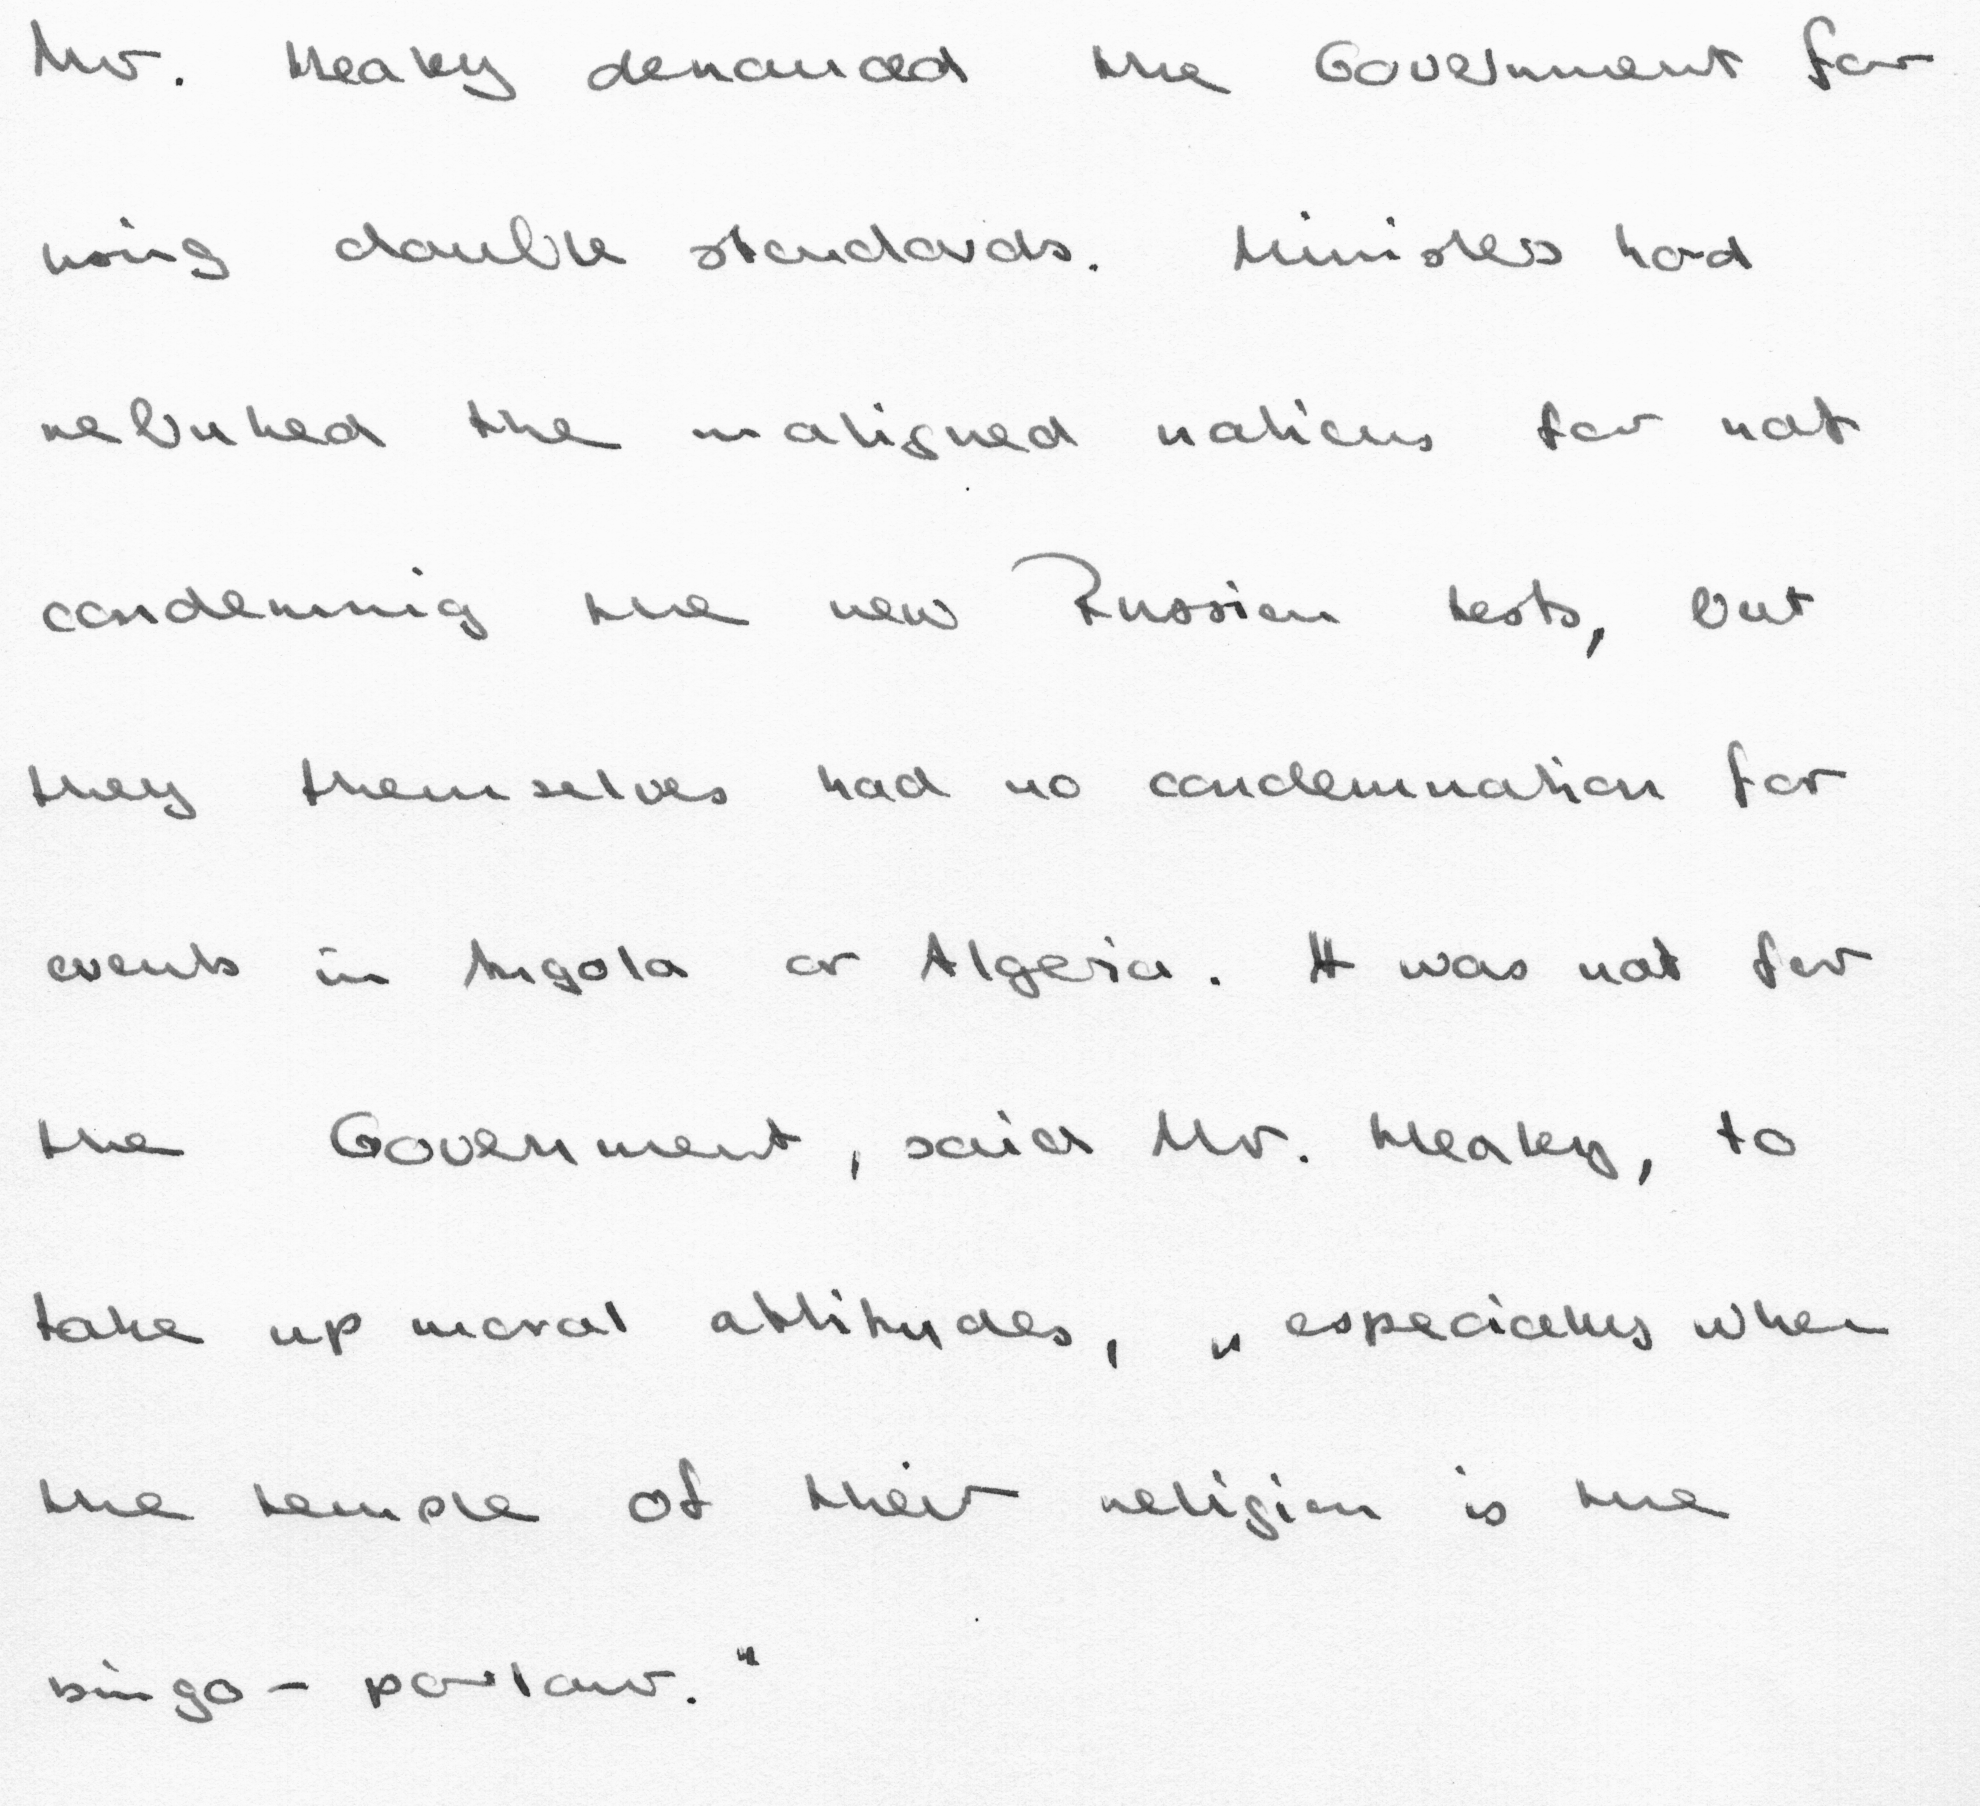 Mr. Healey denounced the Government for
using double standards. Ministers had
rebuked the maligned nations for not
condemning the new Russian tests, but
they themselves had no condemnation for
events in Angola or Algeria. It was not for
the Government, said Mr. Healey, to
take up moral attitudes, „especially when
the temple of their religion is the
bingo-parlour."